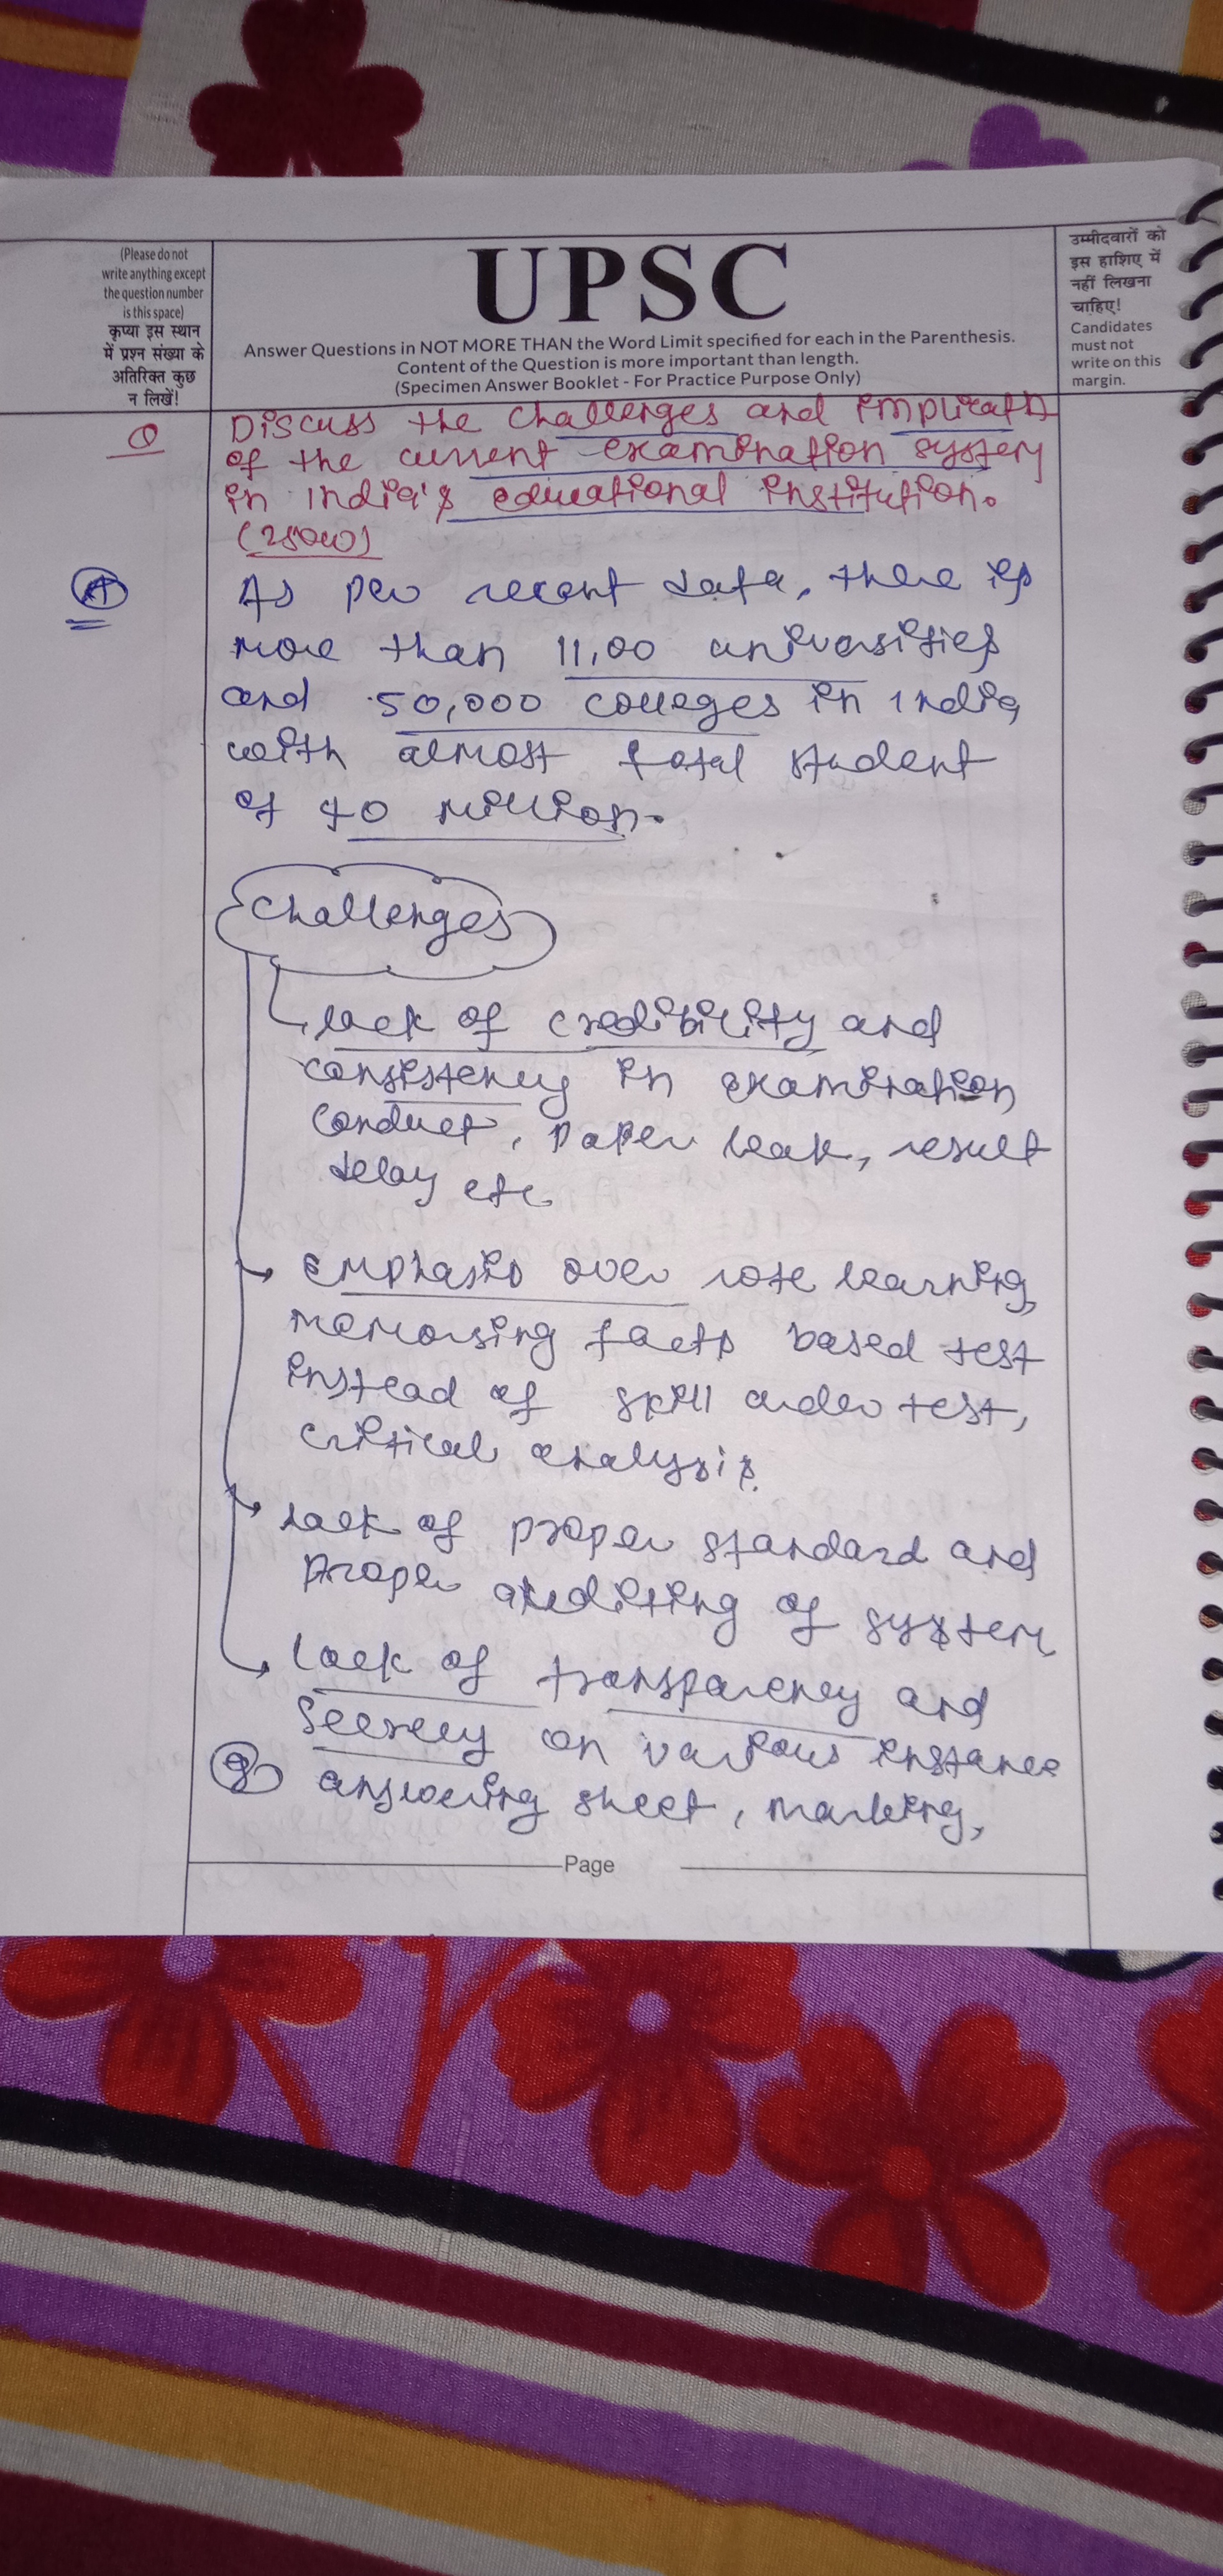 (Please do not
write anything except
the question number
is this space)
कृप्या इस स्थान
में प्रश्न संख्या के
अतिरिक्त कुछ
न लिखें!
UPSC
Answer Questions in NOT MORE THAN the Word Limit specified for each in the Parenthesis.
Content of the Question is more important than length.
(Specimen Answer Booklet - For Practice Purpose Only)
उम्मीदवारों को
इस हाशिए में
नहीं लिखना
चाहिए!
Candidates
must not
write on this
margin.
Q Discuss the challenges and
of the current examination system
in India's educational institution.
(250w)
A As per recent data, there is
more than 11,00 universities
and 50,000 colleges in India
with almost total student
of 40 million.
Challenges
lack of credibility and
consistency in examination
conduct, paper leak, result
delay etc
Emphasis over rote learning,
memorsing facts based test
instead of skill test,
critical analysis.
lack of proper standard and
proper auditing of system
lack of transparency and
secrecy on various instance
answering sheet, marking,
Page